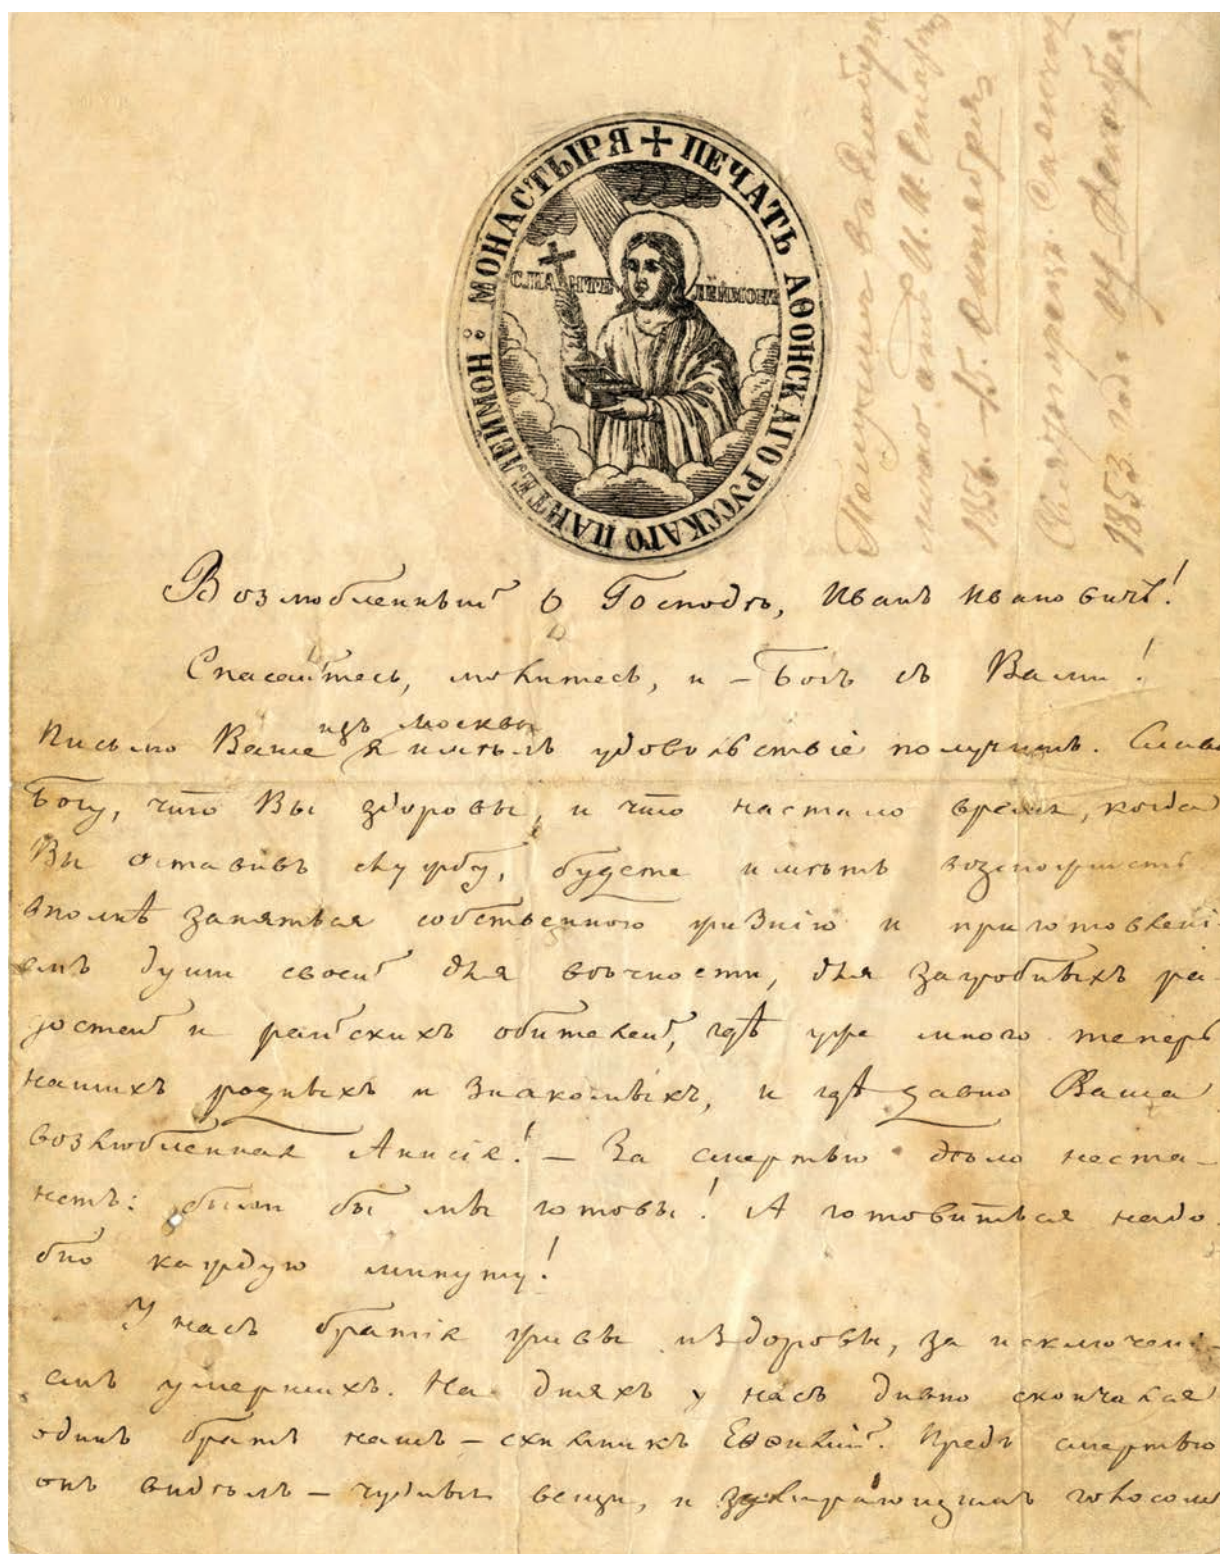 ПЕЧАТЬ АѲОНСКАГО РУССКАГО ПАНТЕЛЕЙМОН: МОНАСТЫРЯ
С. ПАНТЕ ЛЕЙМОНЪ
Возлюбленный о Господѣ, Иванъ Ивановичъ!
Спасайтесь, молитесь, и – Богъ съ Вами!
изъ Москвы
Письмо Ваше я имѣлъ удовольствіе получить. Слава
Богу, что Вы здоровы, и что настало время, когда
Вы оставивъ службу, будете имѣть возможность
вполнѣ заняться собственною жизнію и приготовлені-
емъ души своей для вѣчности, для загробныхъ ра-
достей и райскихъ обителей, гдѣ уже много теперь
нашихъ родныхъ и знакомыхъ, и гдѣ давно Ваша
возлюбленная Анисія! – За смертью дѣло неста-
нетъ: были бы мы готовы! А готовиться надо-
бно каждую минуту!
У насъ братія живы издоровы, за исключені-
емъ умершихъ. На дняхъ у насъ дивно скончался
одинъ братъ нашъ – схимникъ Предъ смертью
онъ видѣлъ – чудныя вещи, и голосомъ
1856. Октября
1853 года Декабря